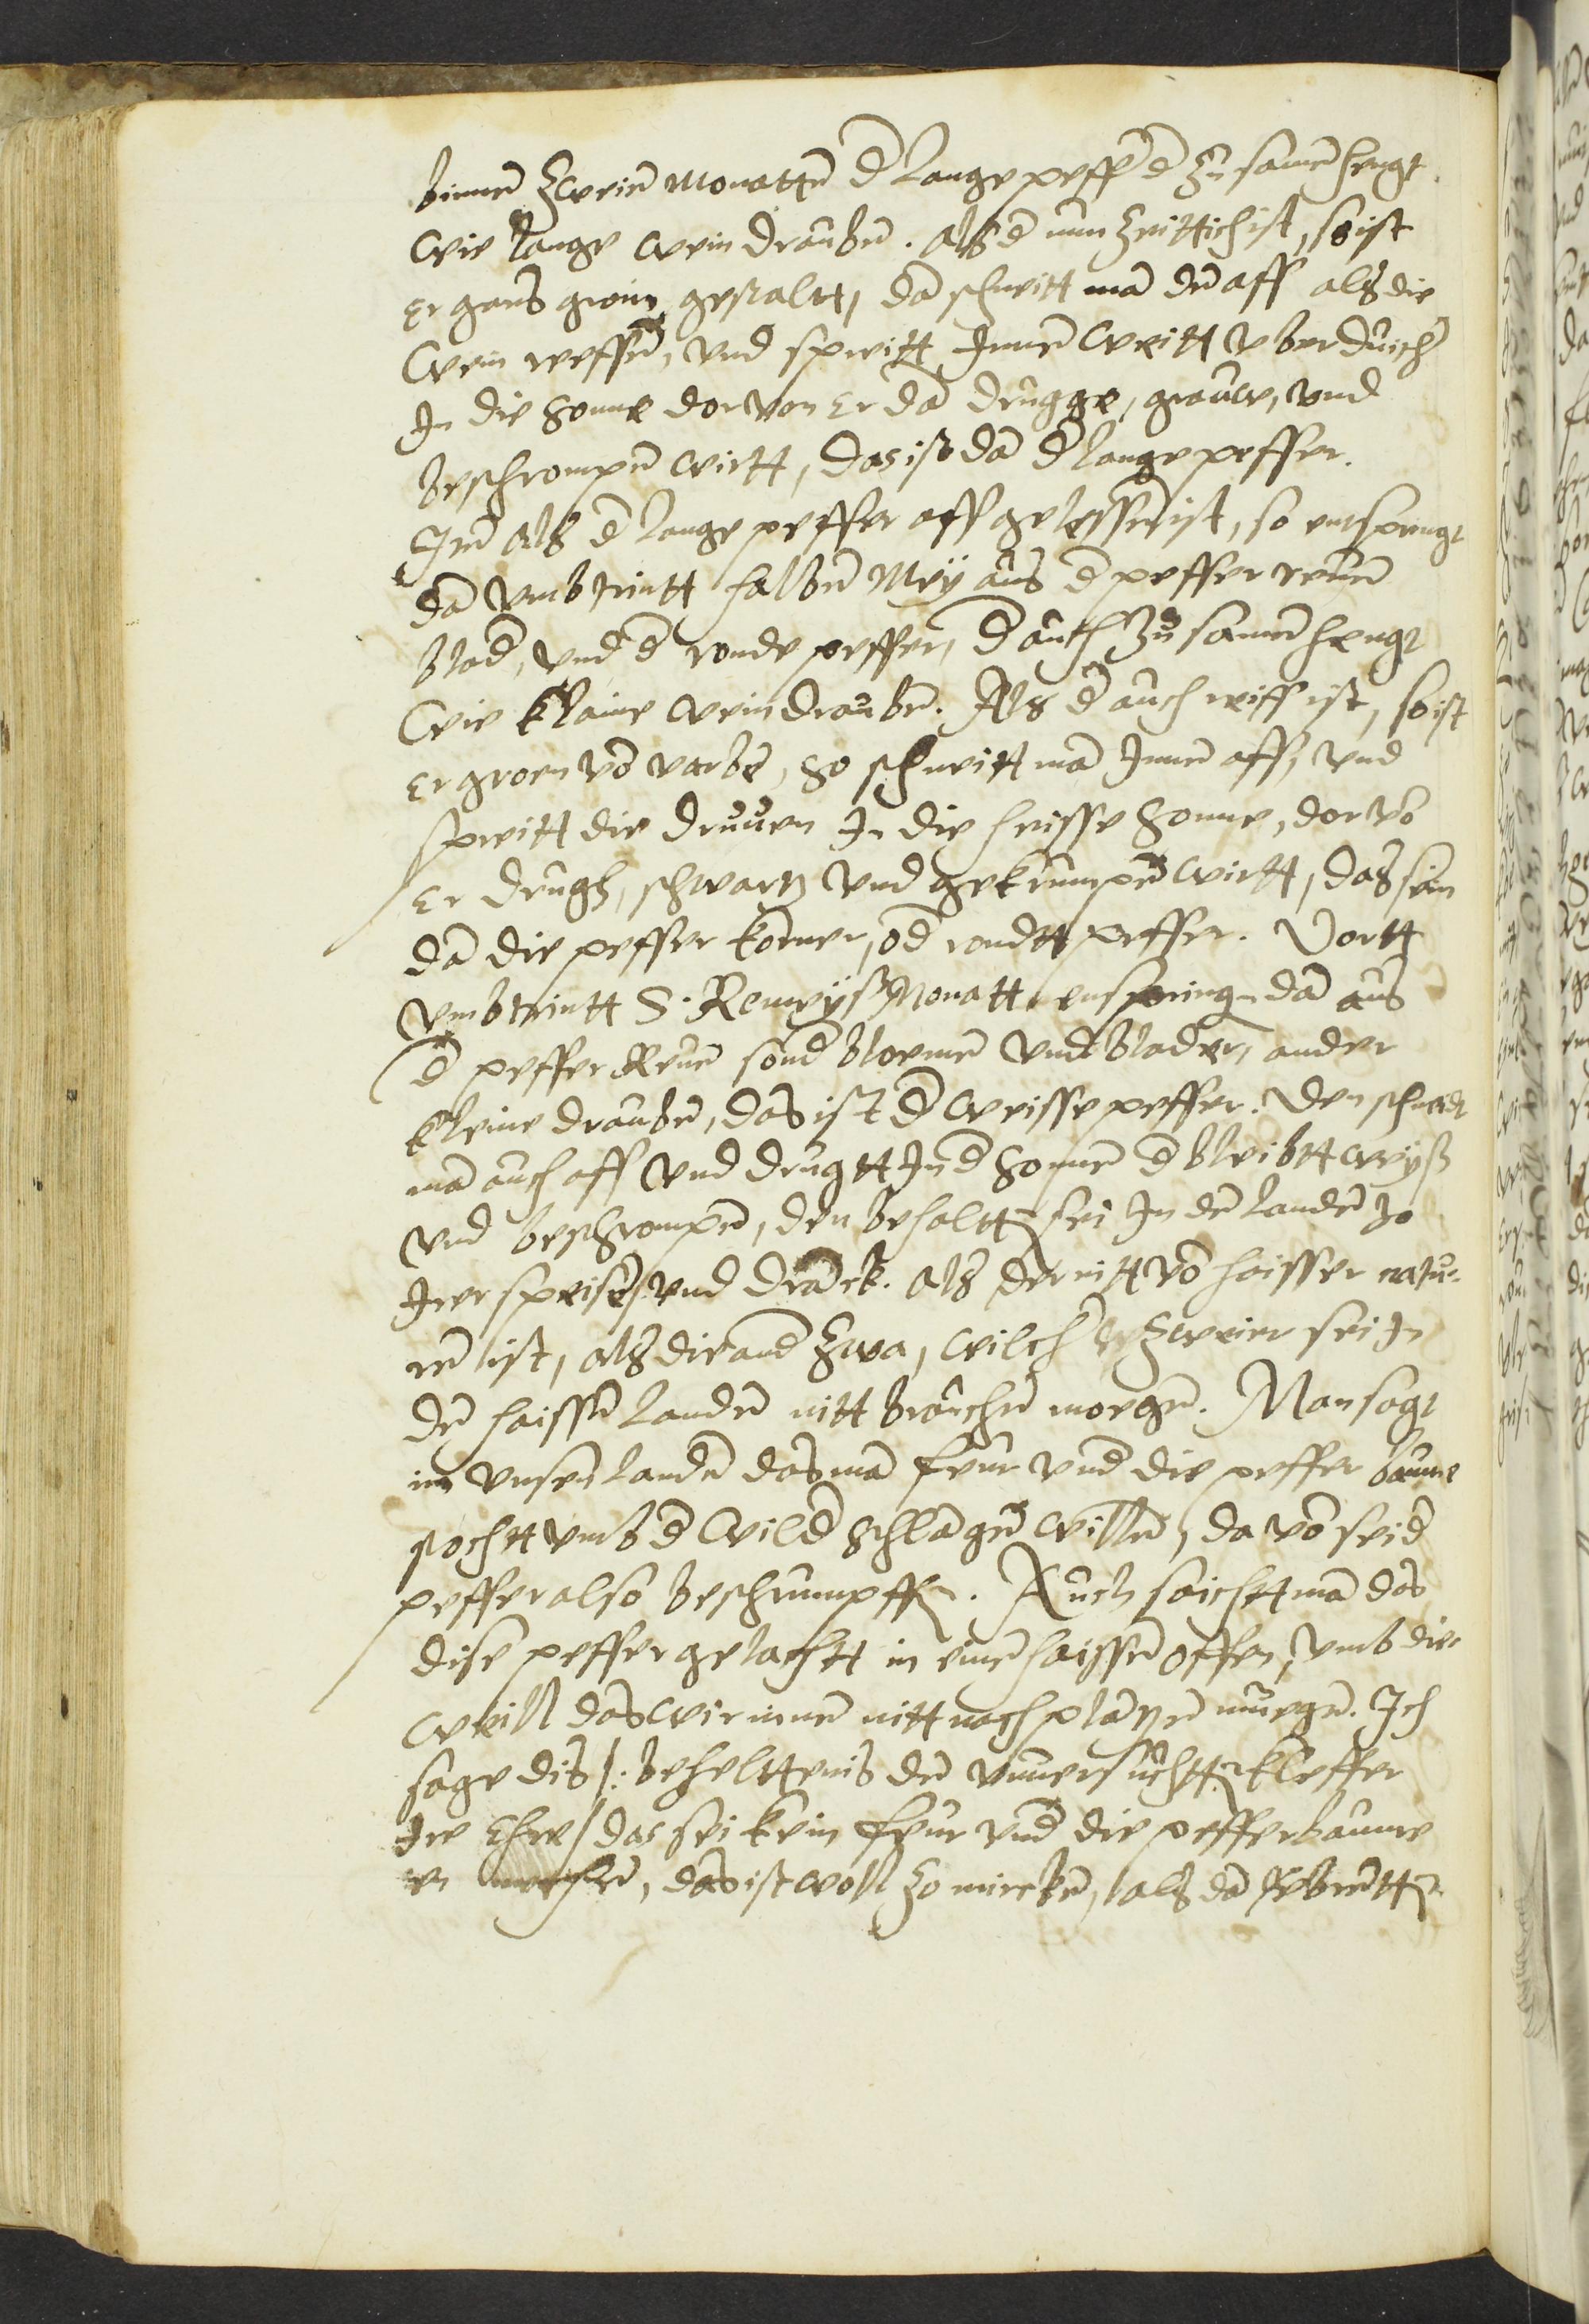 binnen zweien Monatten d lange peff d zu samen hengt
wie lange wein drauben. Alß d nun zeittich ist, so ist
Er gans groin gestaltt, da schneitt ma den aff als die
Wein reffen, vnd spreitt Innen weitt vber duicher
In die Sonne dor von Er da drugge, grauw, vnd
beschrompen wirtt, das ist da d lange peffer.
Ind als d lange peffer aff gelessen ist, so entspringt
da vmbtrintt halben Mey aus d peffer reuen
blad, vnd d ronde peffer, d auch zu samen hengt
wie klaine wein drauben. Als d auch reiff ist, so ist
Er groen vo varbe, so schneitt ma Innen aff, vnd
spreitt die druuen In die heisse Sonne, dor vo
Er drugh, schwartz vnd gekrumpen wirtt, das sein
da die peffer korner, od rondtt peffer. Vortt
vmbtrintt S. Remeyß Monatt enspring da aus
d peffer Reuen sond bloemen vnd blader, ander
kleine drauben, das ist d weisse peffer. Den schneidt
ma auch aff vnd drugtt In d Sonnen d bleibtt weyß
vnd beschrompen, den behaltt sei In den landen zo
Irer speisen vnd dranck. Als der nitt vo haisser natu-
ren ist, als die and zwa, wilch zweier sei In
den haissen landen nitt brauchen moegen. Man sagt
in vnsen landen das ma feur vnd die peffer baume
stochtt vmb d wild schlangen willen, da vo sei d
peffer also beschrumpff. Auch saichtt ma das
dise peffer gelachtt in einen haissen offen, vmb die
weill das wir innen nitt noch plantzen muegen. Ich
sage dis /: beheltteniß den vnuersuchtt kleffer
Ire Ehre / das sei kein feur vnd die peffer baume
en machen, das ist woll zo mircken, als da